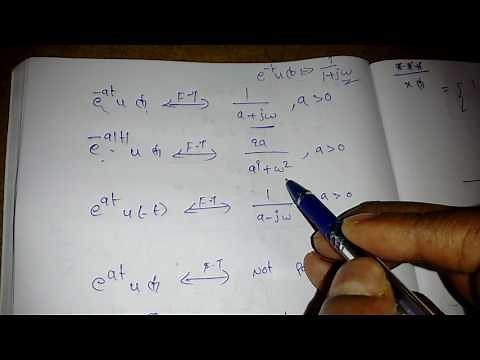 e^-t u(t) ⇒ 1/(1+jω)
e^-at u(t) ⟷ F·T 1/(a+jω), a>0
e^-a|t| u(t) ⟷ F·T 2a/(a²+ω²), a>0
e^at u(-t) ⟷ F·T 1/(a-jω) a>0
e^at u(t) ⟷ F·T Not